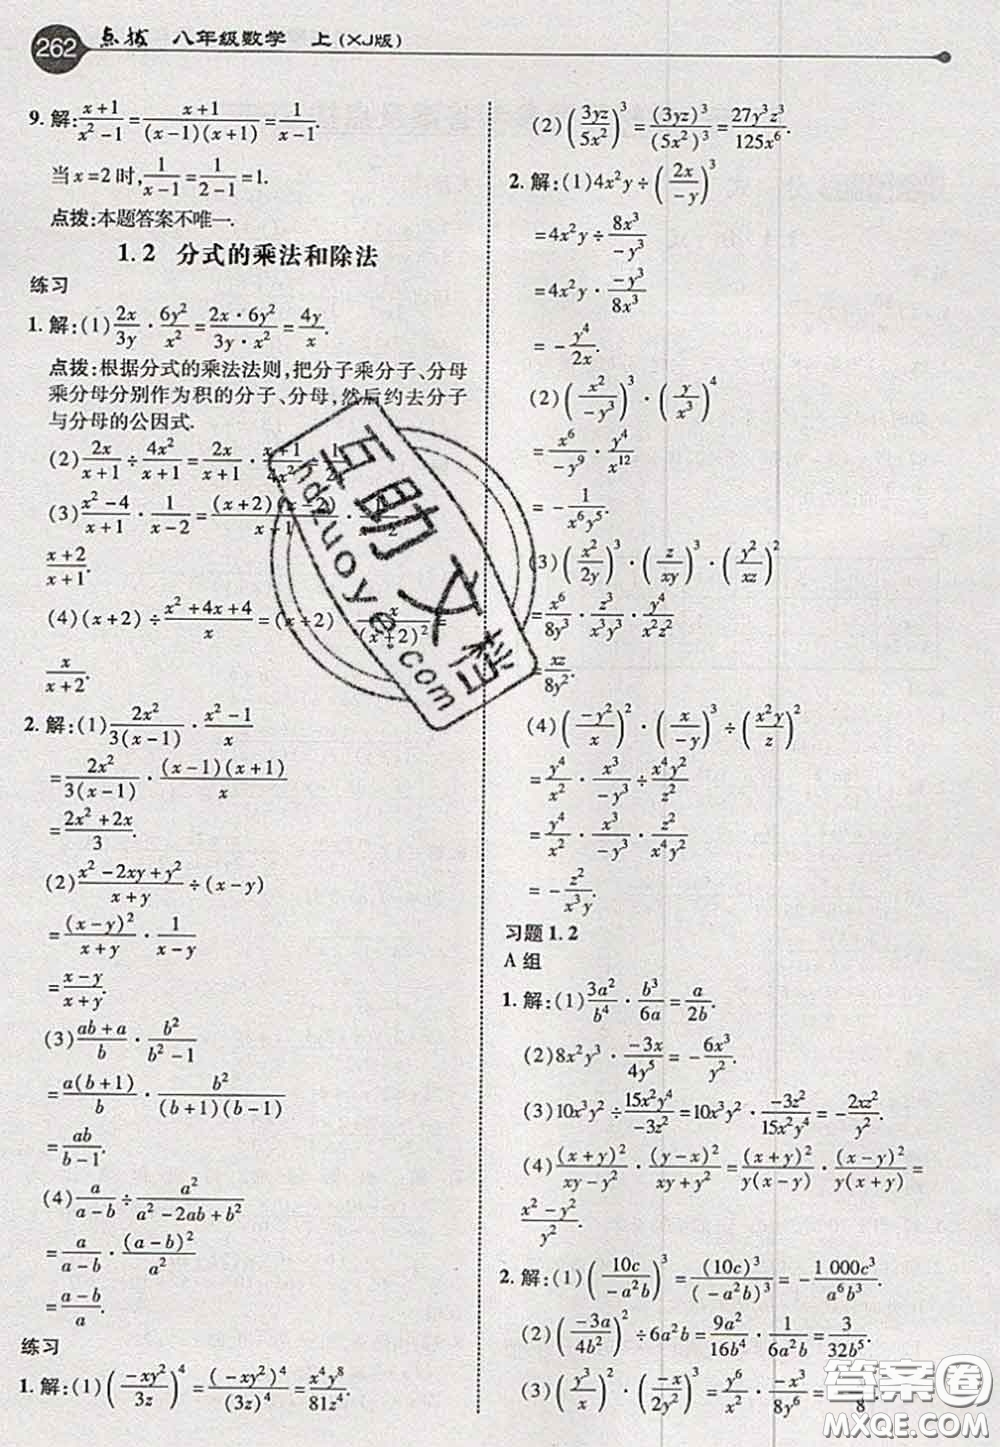 262 点拨 八年级数学 上(XJ版)
9. 解: (x+1)/(x²-1) = (x+1)/((x-1)(x+1)) = 1/(x-1).
当 x=2 时, 1/(x-1) = 1/(2-1) = 1.
点拨:本题答案不唯一.
1.2 分式的乘法和除法
练习
1. 解:(1) 2x/3y · 6y²/x² = (2x·6y²)/(3y·x²) = 4y/x.
点拨:根据分式的乘法法则,把分子乘分子、分母
乘分母分别作为积的分子、分母,然后约去分子
与分母的公因式.
(2) 2x/(x+1) ÷ 4x²/(x+1) = 2x/(x+1) · (x+1)/4x² = 1/
(3) (x²-4)/(x+1) · 1/(x-2) = (x+2)(x-2)/(x+1) ·
(x+2)/(x+1).
(4) (x+2) ÷ (x²+4x+4)/x = (x+2) · x/(x+2)² =
x/(x+2).
2. 解:(1) 2x²/(3(x-1)) · (x²-1)/x
= 2x²/(3(x-1)) · (x-1)(x+1)/x
= (2x²+2x)/3.
(2) (x²-2xy+y²)/(x+y) ÷ (x-y)
= (x-y)²/(x+y) · 1/(x-y)
= (x-y)/(x+y).
(3) (ab+a)/b · b²/(b²-1)
= a(b+1)/b · b²/((b+1)(b-1))
= ab/(b-1).
(4) a/(a-b) ÷ a²/(a²-2ab+b²)
= a/(a-b) · (a-b)²/a²
= (a-b)/a.
练习
1. 解:(1) (-xy²/3z)⁴ = (-xy²)⁴/(3z)⁴ = x⁴y⁸/81z⁴.
(2) (3yz/5x²)³ = (3yz)³/(5x²)³ = 27y³z³/125x⁶.
2. 解:(1) 4x²y ÷ (2x/-y)³
= 4x²y ÷ 8x³/-y³
= 4x²y · -y³/8x³
= -y⁴/2x.
(2) (x²/-y³)³ · (y/x³)⁴
= x⁶/-y⁹ · y⁴/x¹²
= -1/x⁶y⁵.
(3) (x²/2y)³ · (z/xy)³ · (y²/xz)²
= x⁶/8y³ · z³/x³y³ · y⁴/x²z²
= xz/8y².
(4) (-y²/x)² · (x/-y)³ ÷ (x²y/z)²
= y⁴/x² · x³/-y³ ÷ x⁴y²/z²
= y⁴/x² · x³/-y³ · z²/x⁴y²
= -z²/x³y.
习题 1.2
A 组
1. 解:(1) 3a²/b⁴ · b³/6a = a/2b.
(2) 8x²y³ · -3x/4y⁵ = -6x³/y².
(3) 10x³y² ÷ 15x²y⁴/-3z² = 10x³y² · -3z²/15x²y⁴ = -2xz²/y².
(4) (x+y)²/(xy-y²) · (y-x)²/(xy+y²) = (x+y)²/(y(x-y)) · (x-y)²/(y(x+y)) =
(x²-y²)/y².
2. 解:(1) (10c/-a²b)³ = (10c)³/(-a²b)³ = -1 000c³/a⁶b³.
(2) (-3a/4b²)² ÷ 6a²b = 9a²/16b⁴ · 1/6a²b = 3/32b⁵.
(3) (y³/x²)² · (-x/2y)³ = y⁶/x⁴ · -x³/8y³ = /8.
互助文档
hdzuoye.com
答案圈
MXQE.COM